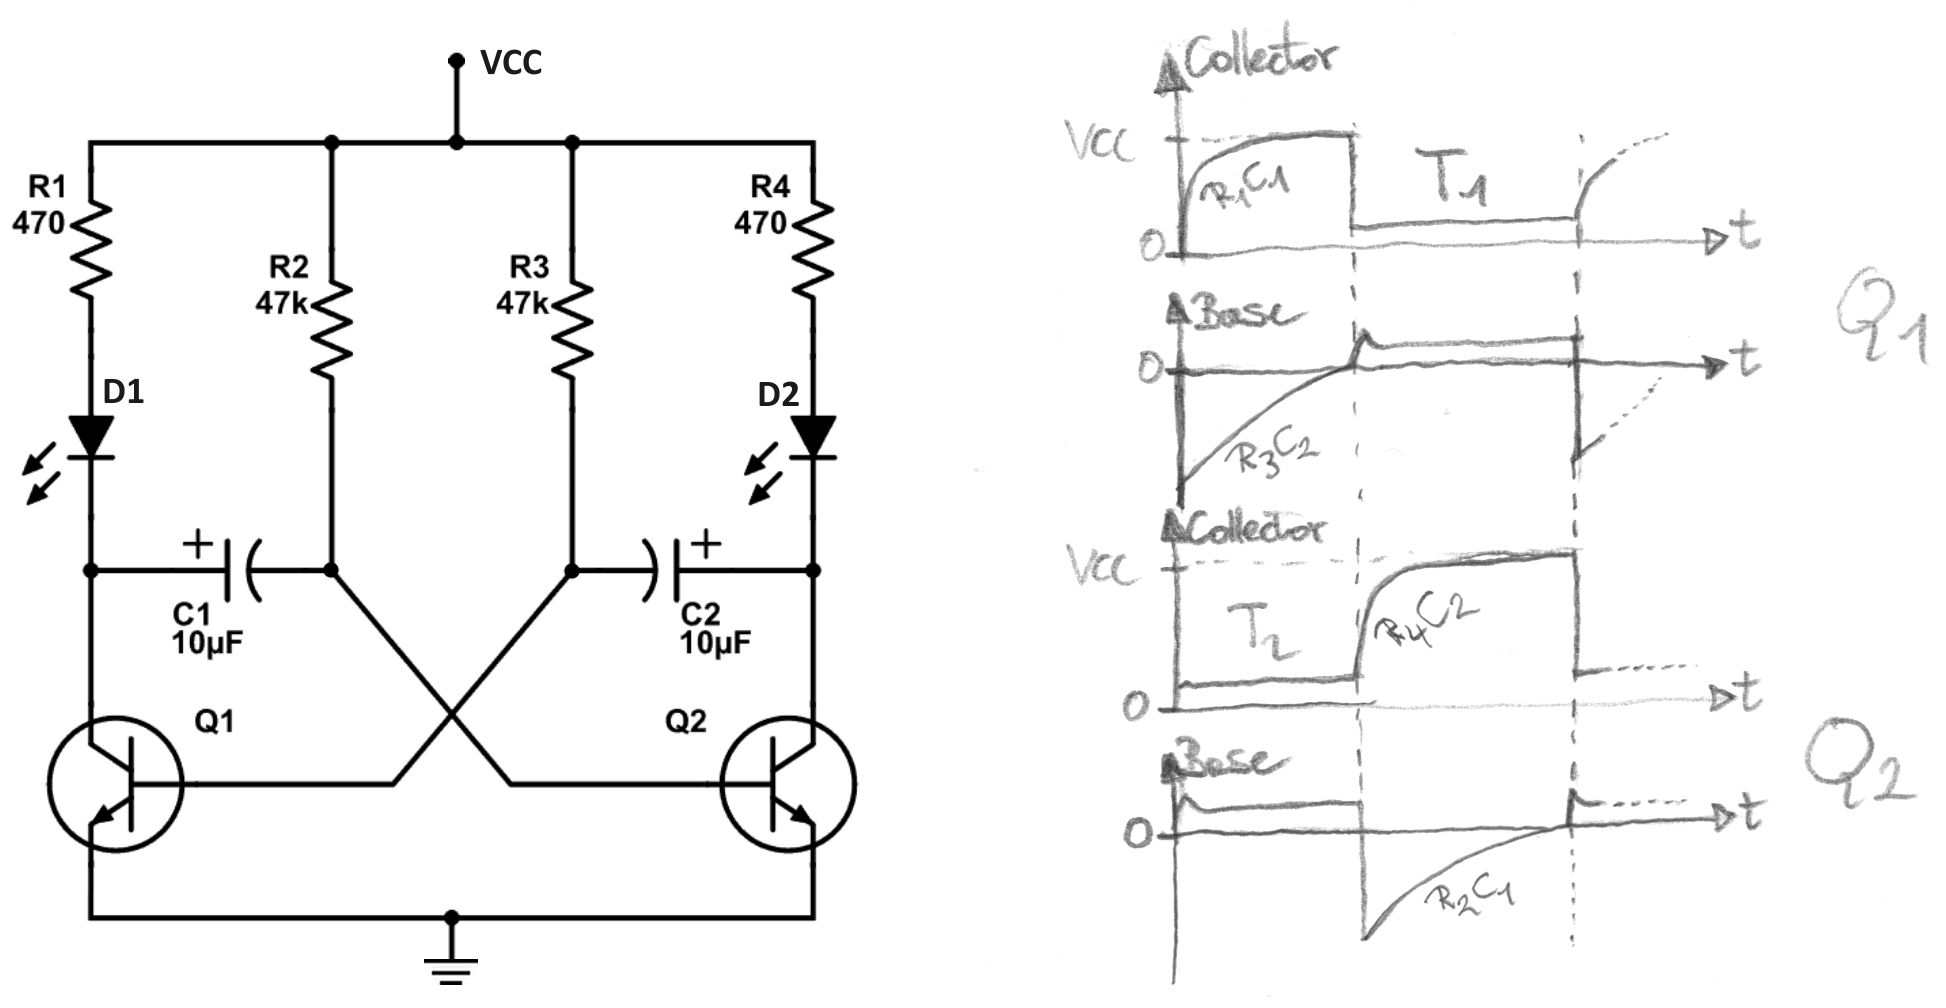 VCC
R1
470
R2
47k
R3
47k
R4
470
D1
D2
+
+
C1
10µF
C2
10µF
Q1
Q2
Collector
VCC
R1C1
T1
0
t
Base
0
t
R3C2
Q1
Collector
VCC
T2
R4C2
0
t
Base
0
t
R2C1
Q2